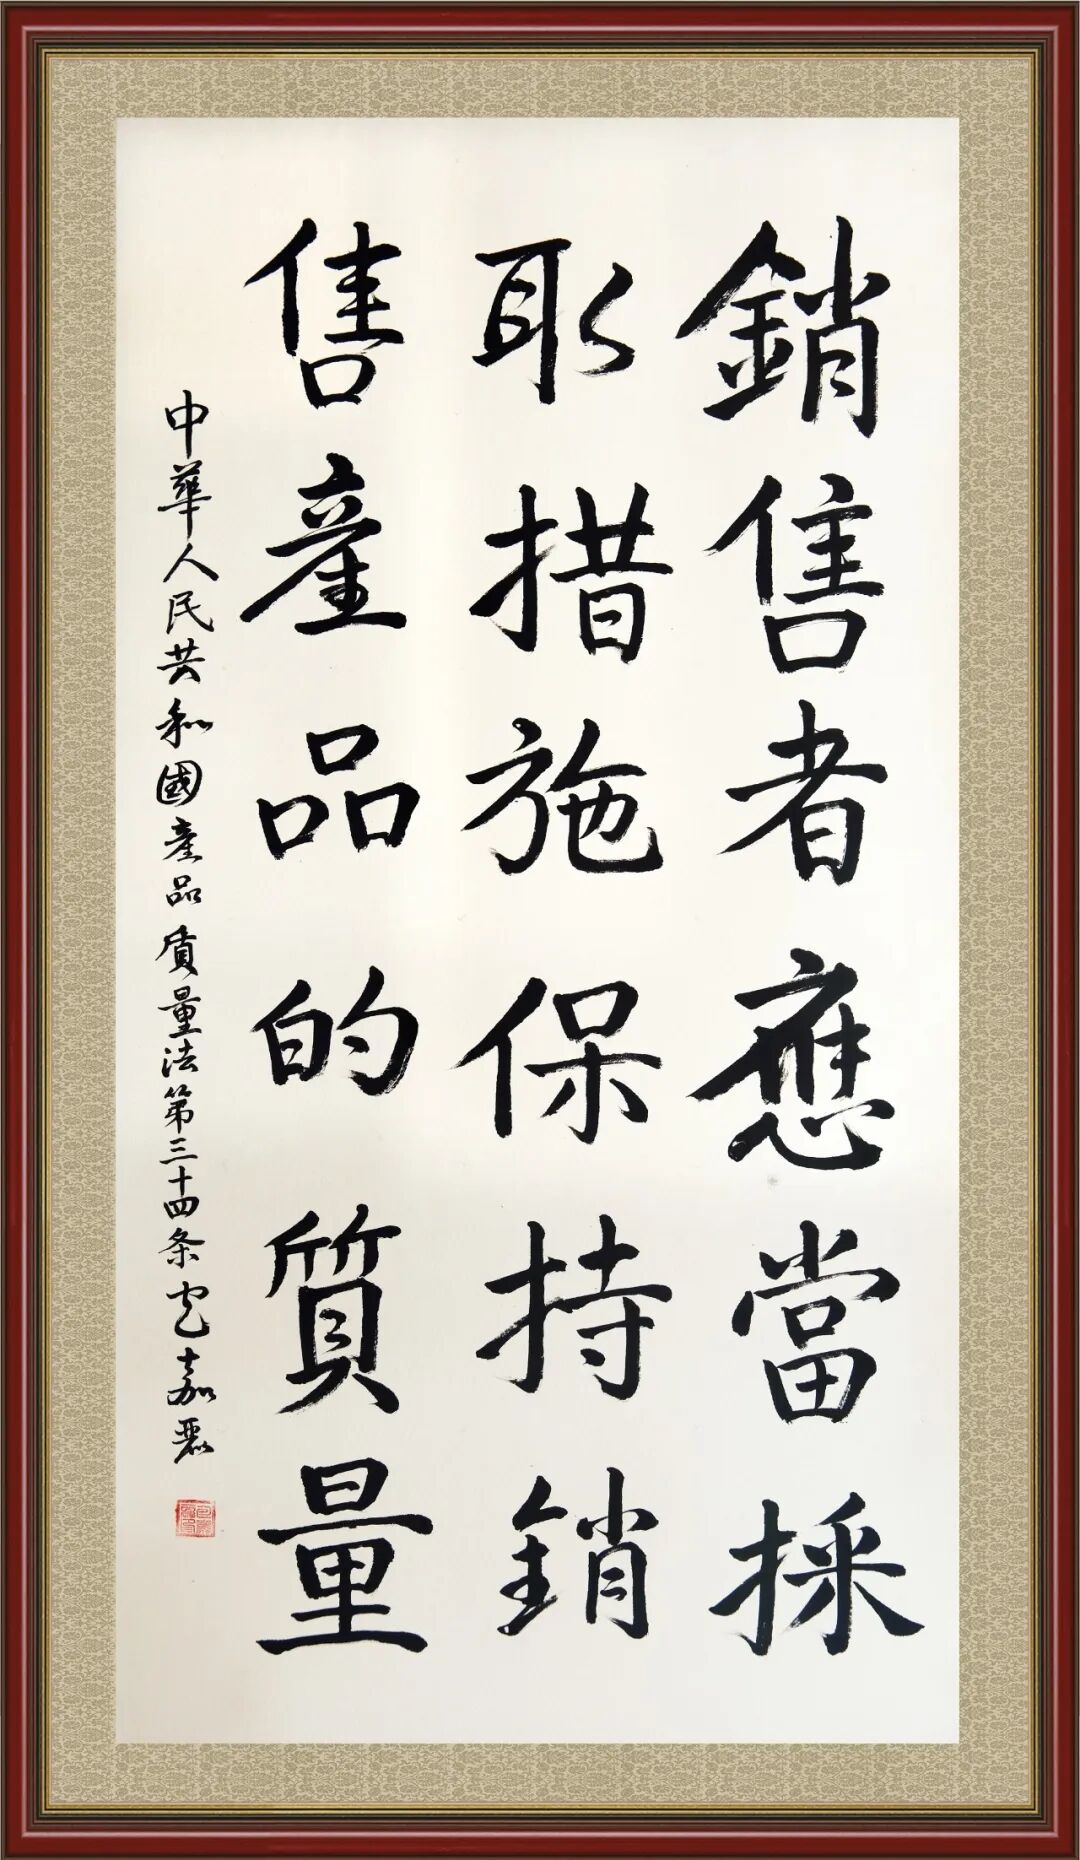 銷售者應當採
取措施保持銷
售產品的質量
中華人民共和國產品质量法第三十四条包嘉麗